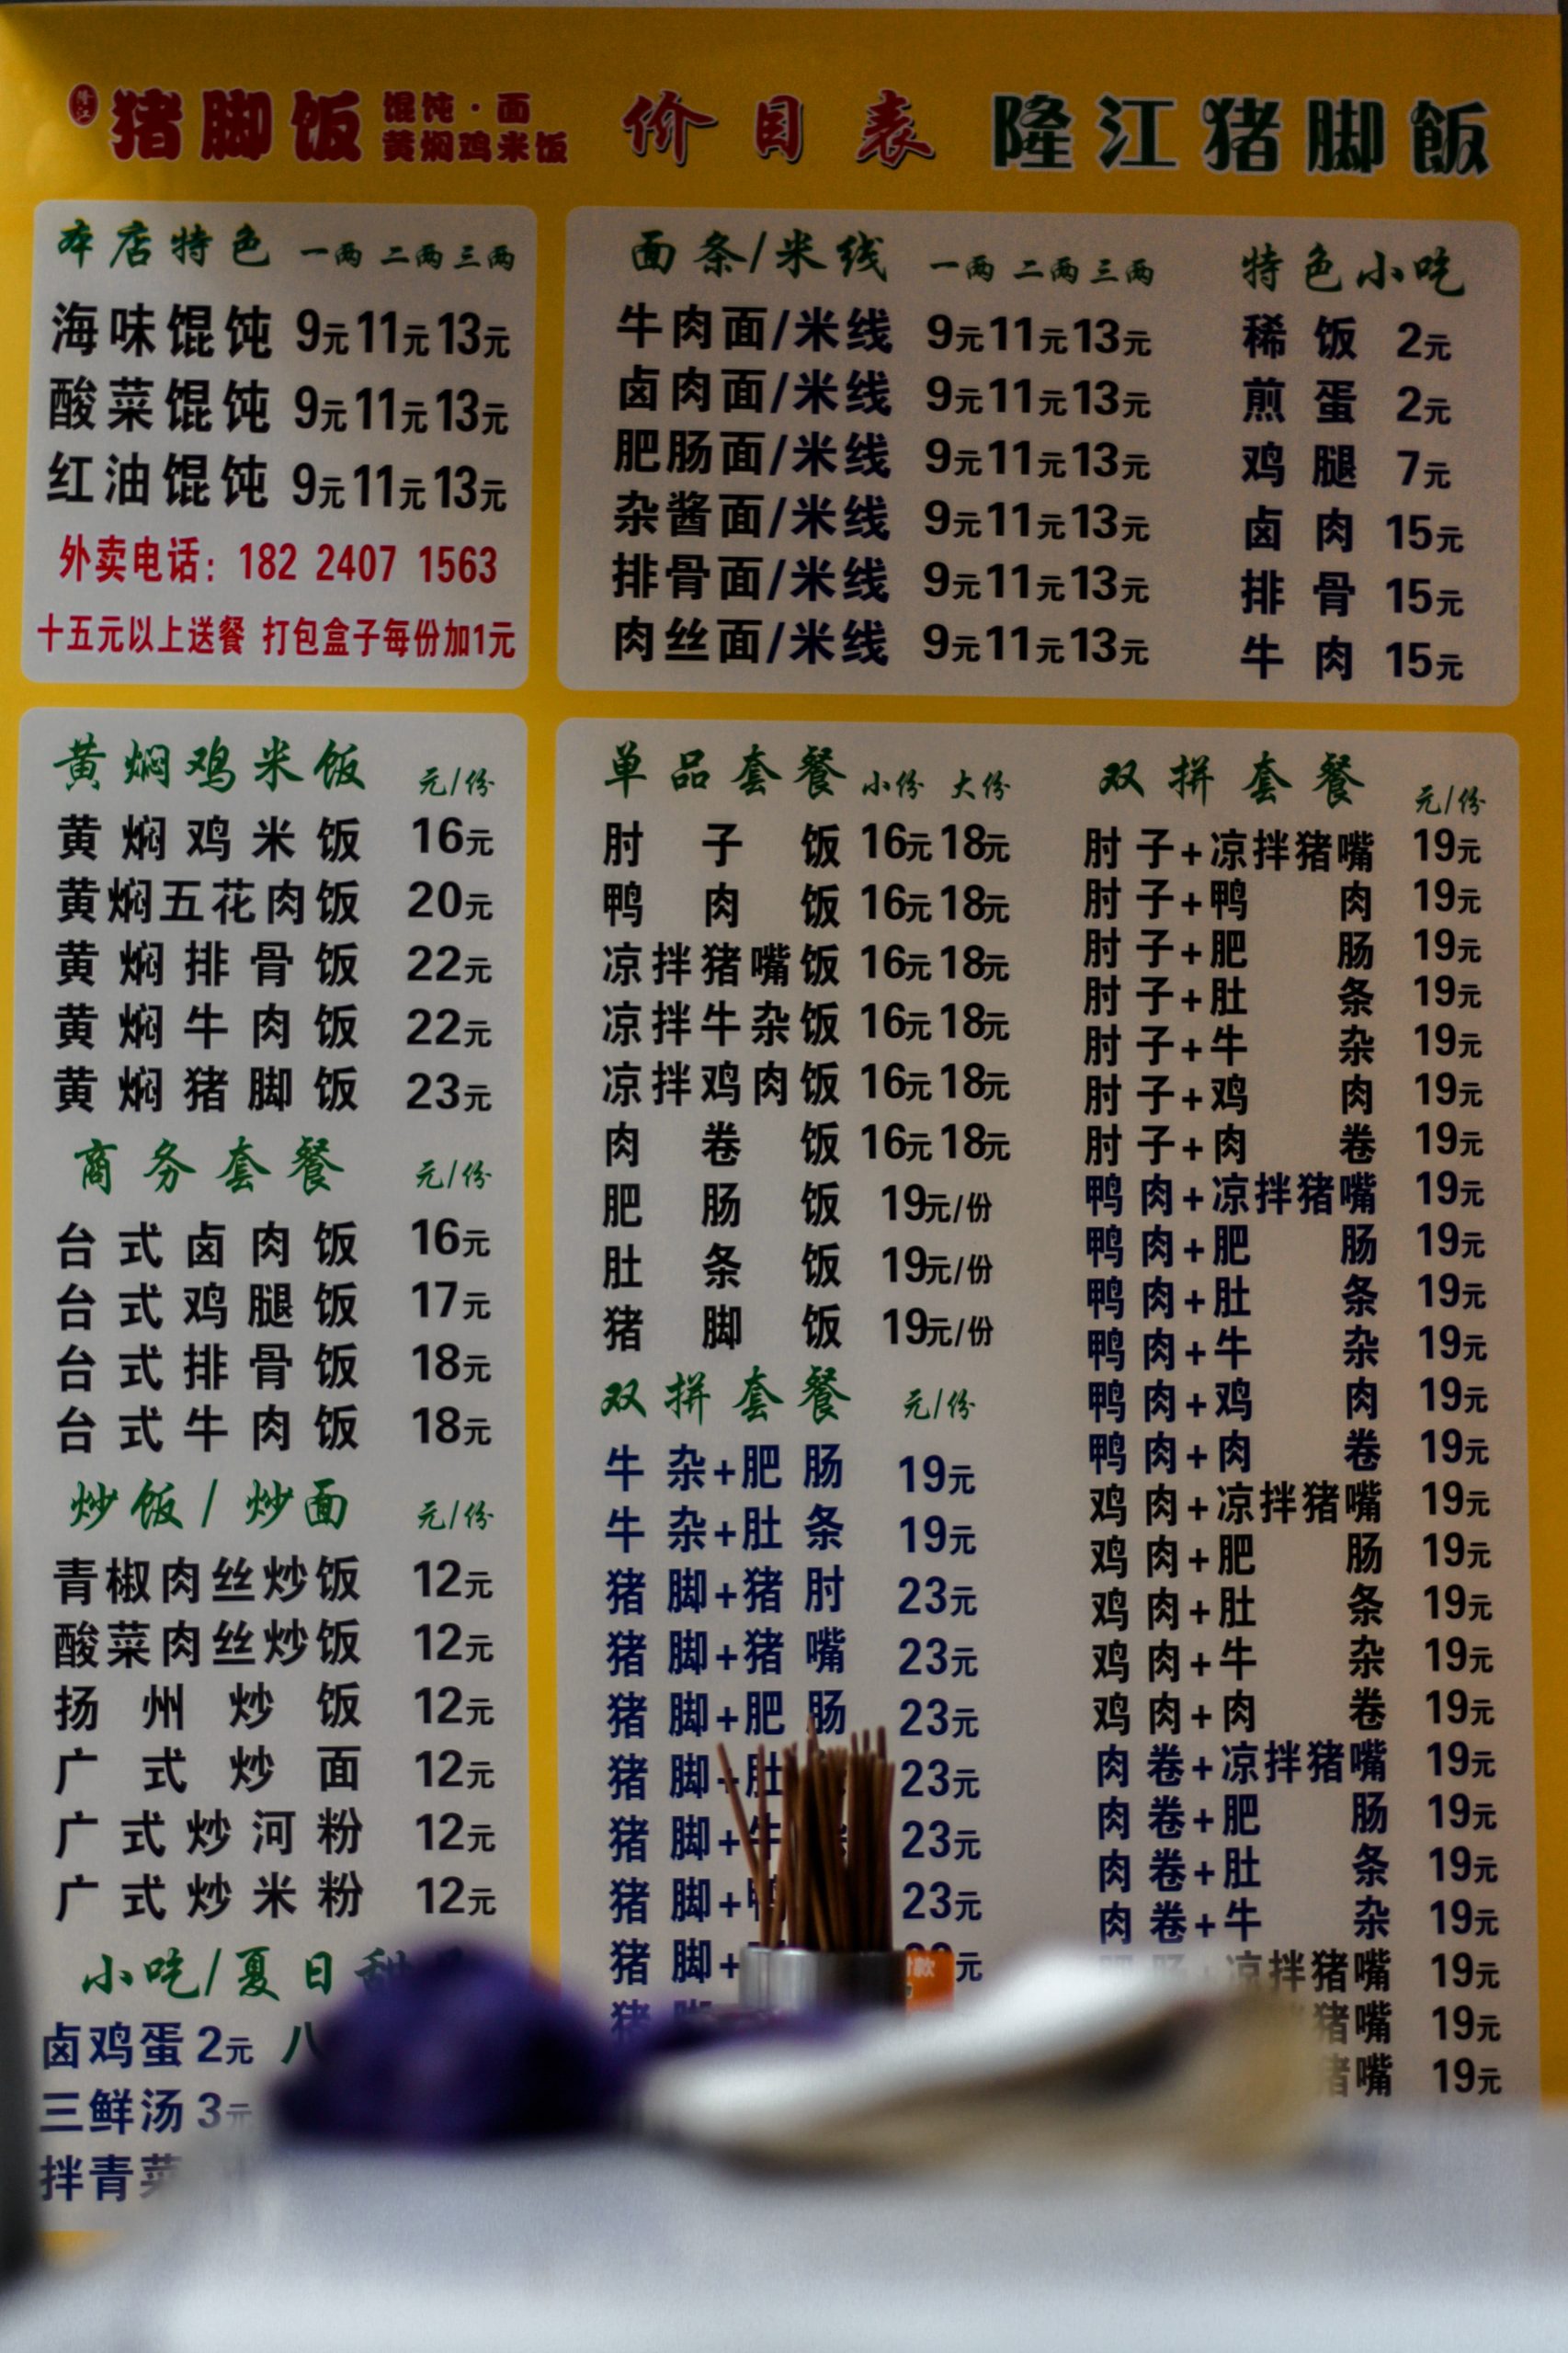 隆江 猪脚饭 馄饨·面
黄焖鸡米饭
价目表
隆江猪脚飯
本店特色 一两 二两 三两
海味馄饨 9元 11元 13元
酸菜馄饨 9元 11元 13元
红油馄饨 9元 11元 13元
外卖电话: 182 2407 1563
十五元以上送餐 打包盒子每份加1元
面条/米线 一两 二两 三两
牛肉面/米线 9元 11元 13元
卤肉面/米线 9元 11元 13元
肥肠面/米线 9元 11元 13元
杂酱面/米线 9元 11元 13元
排骨面/米线 9元 11元 13元
肉丝面/米线 9元 11元 13元
特色小吃
稀饭 2元
煎蛋 2元
鸡腿 7元
卤肉 15元
排骨 15元
牛肉 15元
黄焖鸡米饭 元/份
黄焖鸡米饭 16元
黄焖五花肉饭 20元
黄焖排骨饭 22元
黄焖牛肉饭 22元
黄焖猪脚饭 23元
商务套餐 元/份
台式卤肉饭 16元
台式鸡腿饭 17元
台式排骨饭 18元
台式牛肉饭 18元
炒饭/炒面 元/份
青椒肉丝炒饭 12元
酸菜肉丝炒饭 12元
扬州炒饭 12元
广式炒面 12元
广式炒河粉 12元
广式炒米粉 12元
小吃/夏日甜
卤鸡蛋 2元 八
三鲜汤 3元
拌青菜
单品套餐 小份 大份
肘子饭 16元 18元
鸭肉饭 16元 18元
凉拌猪嘴饭 16元 18元
凉拌牛杂饭 16元 18元
凉拌鸡肉饭 16元 18元
肉卷饭 16元 18元
肥肠饭 19元/份
肚条饭 19元/份
猪脚饭 19元/份
双拼套餐 元/份
牛杂+肥肠 19元
牛杂+肚条 19元
猪脚+猪肘 23元
猪脚+猪嘴 23元
猪脚+肥肠 23元
猪脚+肚 23元
猪脚+牛 23元
猪脚+鸭 23元
猪脚+ 元
猪
双拼套餐 元/份
肘子+凉拌猪嘴 19元
肘子+鸭肉 19元
肘子+肥肠 19元
肘子+肚条 19元
肘子+牛杂 19元
肘子+鸡肉 19元
肘子+肉卷 19元
鸭肉+凉拌猪嘴 19元
鸭肉+肥肠 19元
鸭肉+肚条 19元
鸭肉+牛杂 19元
鸭肉+鸡肉 19元
鸭肉+肉卷 19元
鸡肉+凉拌猪嘴 19元
鸡肉+肥肠 19元
鸡肉+肚条 19元
鸡肉+牛杂 19元
鸡肉+肉卷 19元
肉卷+凉拌猪嘴 19元
肉卷+肥肠 19元
肉卷+肚条 19元
肉卷+牛杂 19元
肥肠+凉拌猪嘴 19元
猪嘴 19元
猪嘴 19元